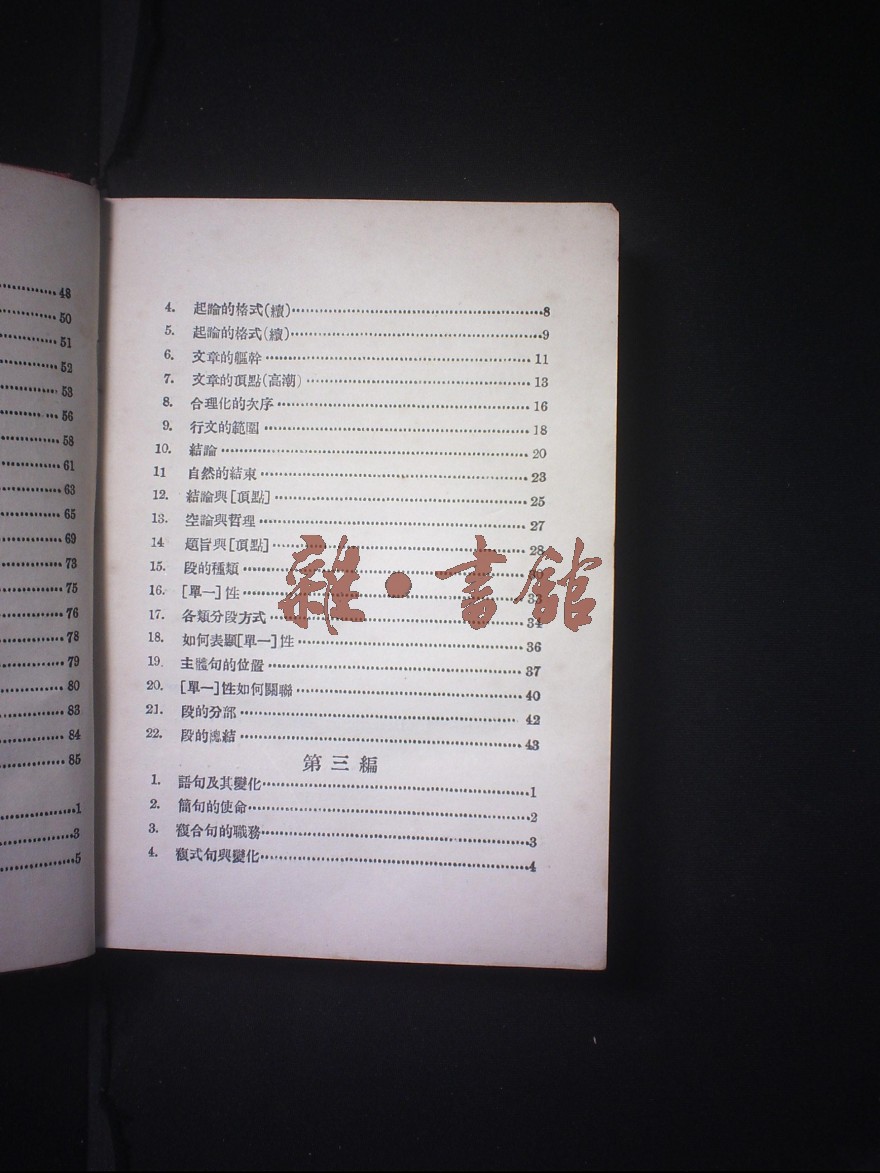 48
50
51
52
53
56
58
61
63
65
69
73
75
76
78
79
80
83
84
85
1
3
5
4. 起論的格式(續)…8
5. 起論的格式(續)…9
6. 文章的軀幹…11
7. 文章的頂點(高潮)…13
8. 合理化的次序…16
9. 行文的範圍…18
10. 結論…20
11 自然的結束…23
12. 結論與[頂點]…25
13. 空論與哲理…27
14 題旨與[頂點]…28
15. 段的種類…
16. [單一]性…33
17. 各類分段方式…34
18. 如何表顯[單一]性…36
19. 主體句的位置…37
20. [單一]性如何關聯…40
21. 段的分部…42
22. 段的總結…43
第三編
1. 語句及其變化…1
2. 簡句的使命…2
3. 複合句的職務…3
4. 複式句與變化…4
雜·書館